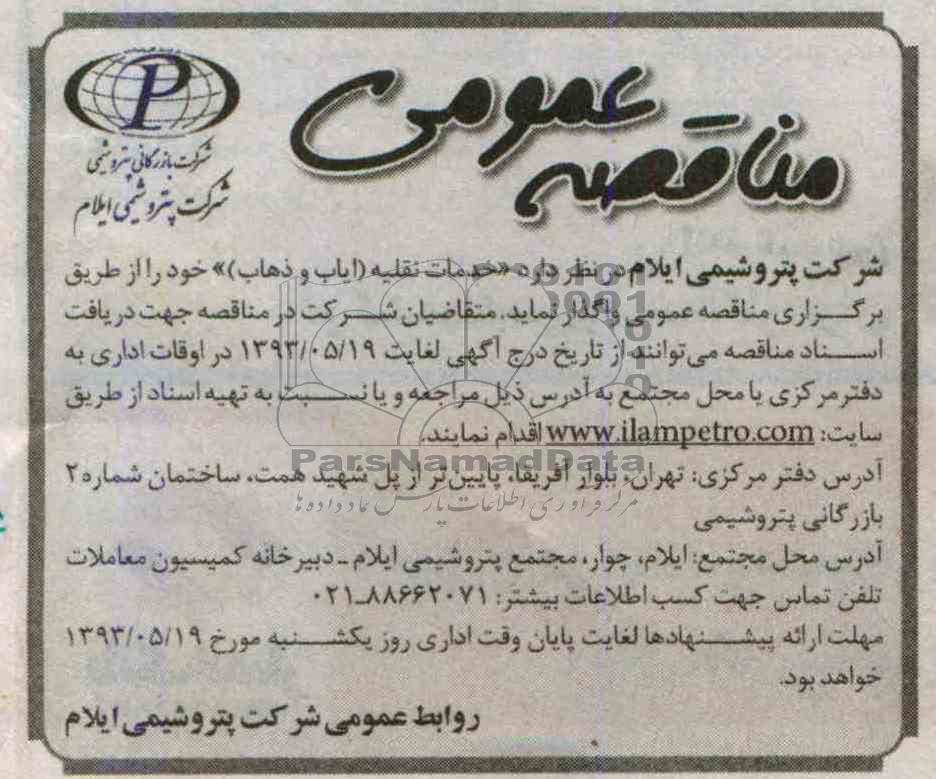 مناقصه عمومی
P
شرکت بازرگانی پتروشیمی
شرکت پتروشیمی ایلام
شرکت پتروشیمی ایلام در نظر دارد «خدمات نقلیه (ایاب و ذهاب)» خود را از طریق
برگزاری مناقصه عمومی واگذار نماید. متقاضیان شرکت در مناقصه جهت دریافت
اسناد مناقصه می‌توانند از تاریخ درج آگهی لغایت ۱۳۹۳/۰۵/۱۹ در اوقات اداری به
دفتر مرکزی یا محل مجتمع به آدرس ذیل مراجعه و یا نسبت به تهیه اسناد از طریق
سایت: www.ilampetro.com اقدام نمایند.
آدرس دفتر مرکزی: تهران، بلوار آفریقا، پایین‌تر از پل شهید همت، ساختمان شماره ۲
بازرگانی پتروشیمی
آدرس محل مجتمع: ایلام، چوار، مجتمع پتروشیمی ایلام ـ دبیرخانه کمیسیون معاملات
تلفن تماس جهت کسب اطلاعات بیشتر: ۸۸۶۶۲۰۷۱ـ۰۲۱
مهلت ارائه پیشنهادها لغایت پایان وقت اداری روز یکشنبه مورخ ۱۳۹۳/۰۵/۱۹
خواهد بود.
روابط عمومی شرکت پتروشیمی ایلام
ParsNamadData